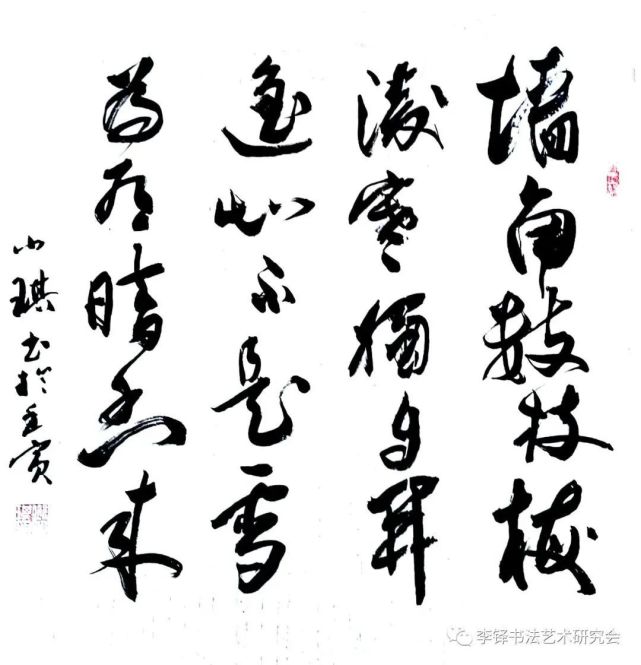 墙角数枝梅
凌寒獨自開
遥知不是雪
為有暗香来
小琪书於壬寅
李铎书法艺术研究会